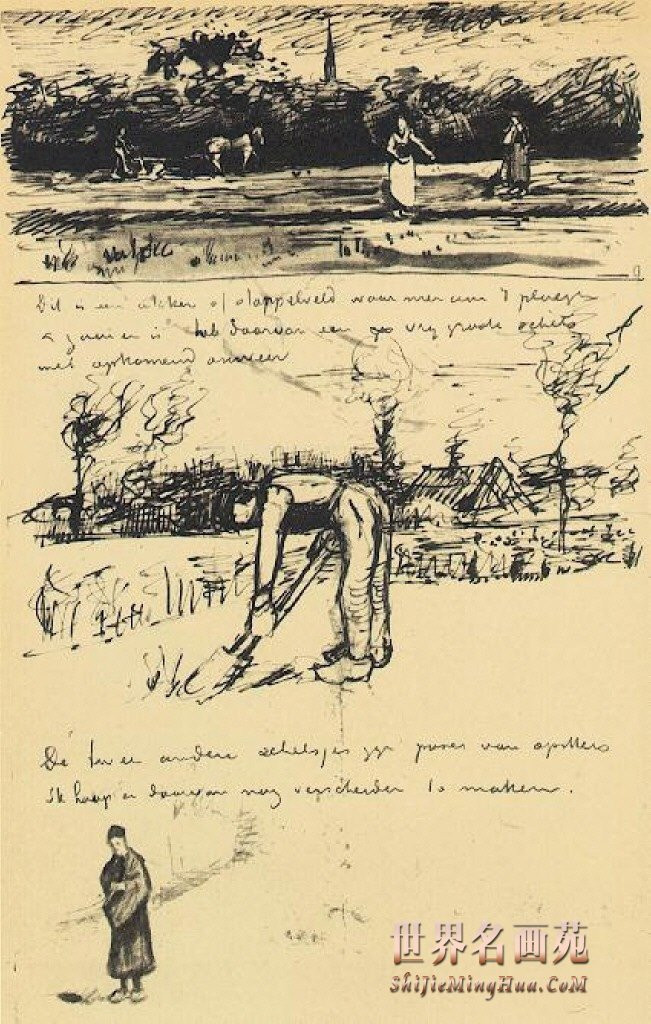 Dit is een akker of stoppelveld waar men aan 't ploegen
& zaaien is heb daarvan een vrij groote schets
met opkomend onweer
De twee andere schetsjes zijn poses van spitters
ik hoop er daarvan nog verscheiden te maken.
世界名画苑
ShiJieMingHua.CoM